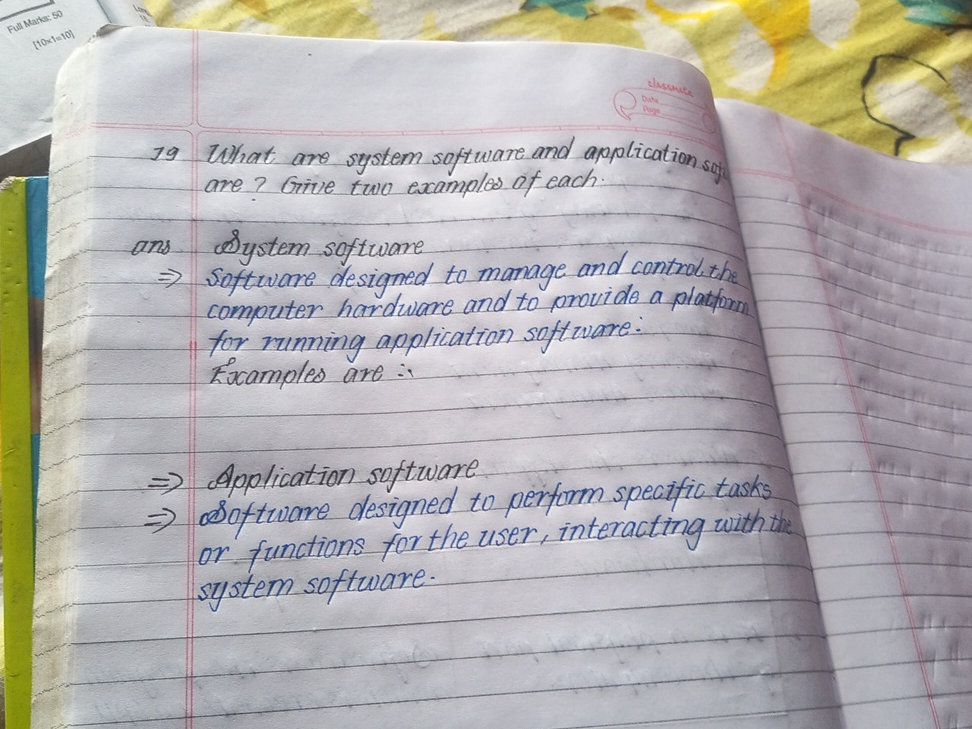 Full Marks: 50
[10×1=10]
classmate
Date
Page
19 What are system software and application sof
are? Give two examples of each.
ans System software
⇒ Software designed to manage and control the
computer hardware and to provide a platform
for running application software:
Examples are :-
⇒ Application software
⇒ Software designed to perform specific tasks
or functions for the user, interacting with the
system software.